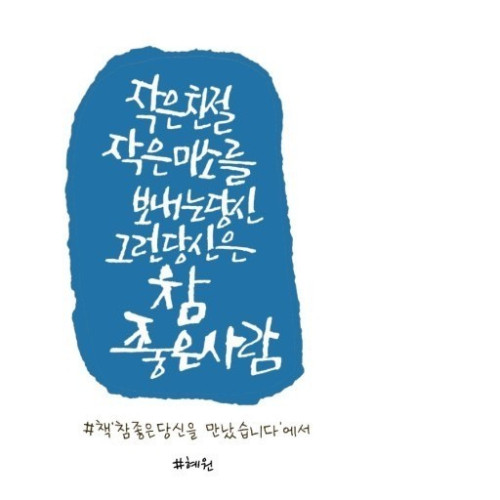 작은친절
작은미소를
보내는당신
그런당신은
참
좋은사람
#책'참좋은당신을 만났습니다'에서
#혜원